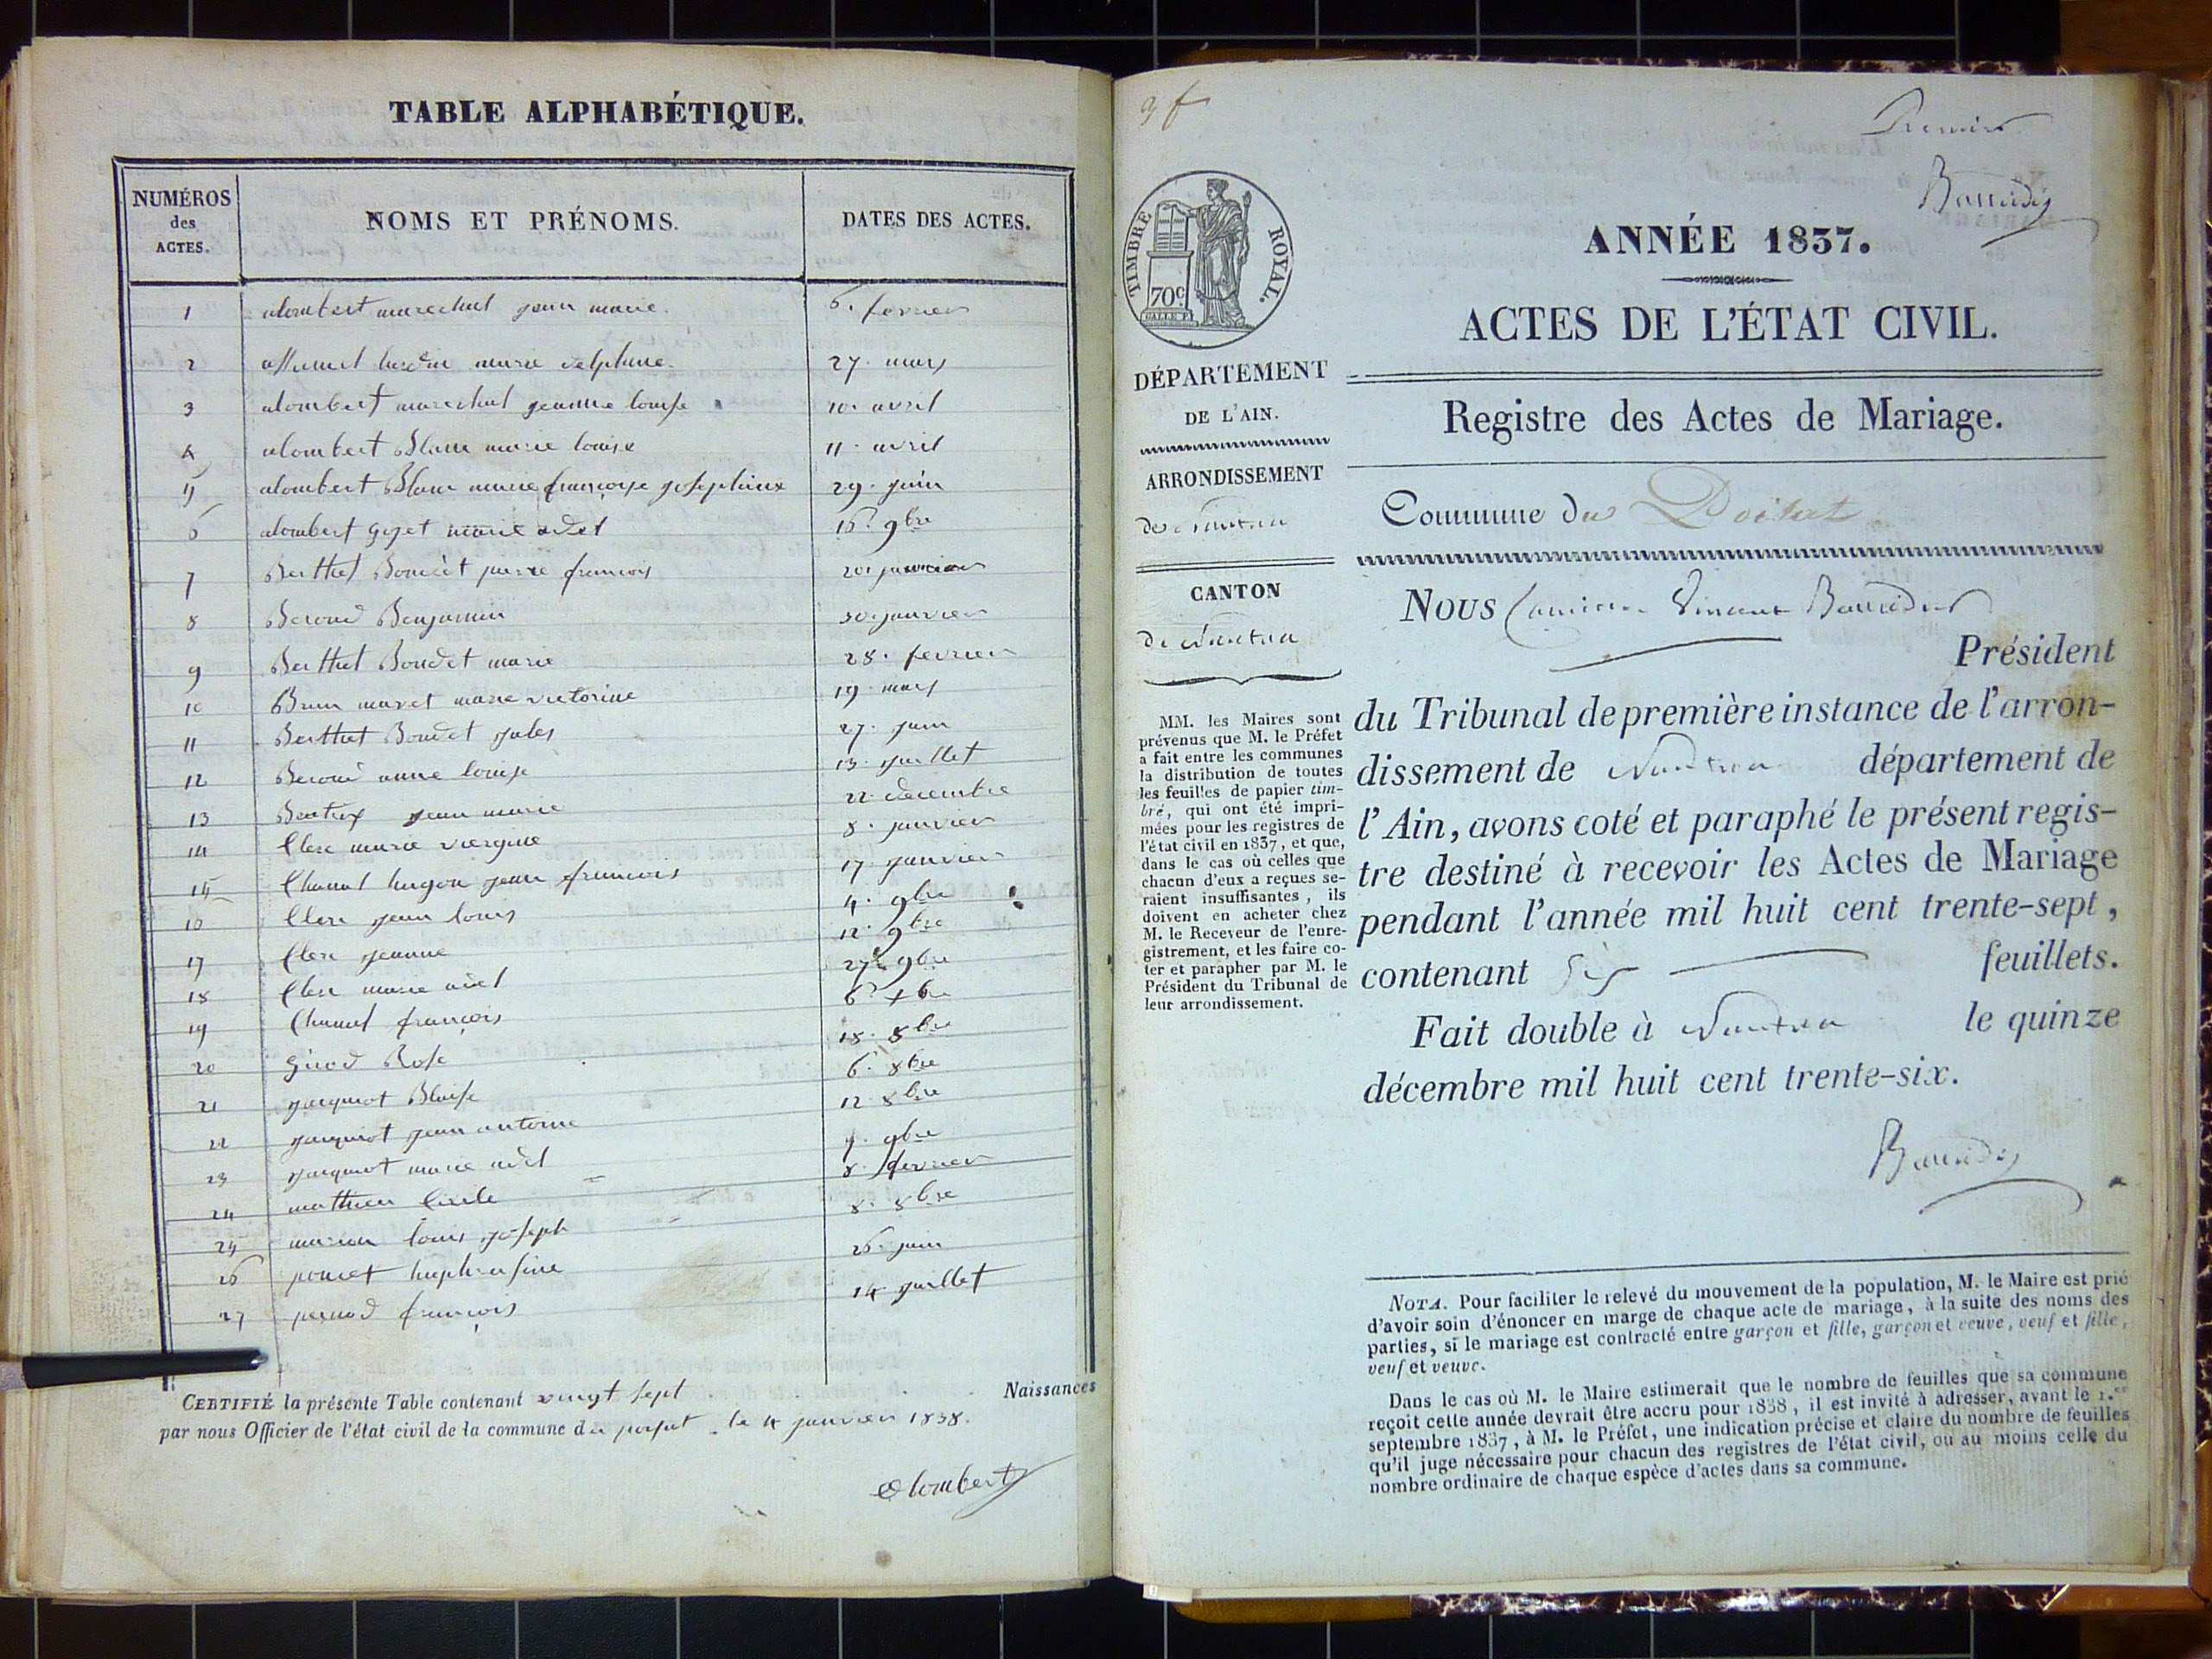 TABLE ALPHABÉTIQUE.
NUMÉROS des ACTES. NOMS ET PRÉNOMS. DATES DES ACTES.
1 alombert marechal jean marie. 6. fevrier
2 marie delphine. 27. mars
3 alombert marechal jeanne louise 10. avril
4 alombert Blanc marie louise 11. avril
5 alombert Blanc marie françoise josephine 29. juin
6 alombert goget marie adel 16. 9bre
7 Berthet Bondet pierre francois 20. janvier
8 Beroud Benjamin 30. janvier
9 Berthet Bondet marie 28. fevrier
10 Brun maret marie victorine 19. mars
11 Berthet Bondet jules 27. juin
12 Beroud anne louise 13. juillet
13 jean marie 22. decembre
14 Clerc marie viergine 8. janvier
15 Chanal hugon jean francois 17. janvier
16 Clerc jean louis 4. 9bre
17 Clerc jeanne 12. 9bre
18 Clerc marie adel 27. 9bre
19 Chanal françois 6.
20 girod Rose 18. 8bre
21 jacquiot Blaise 6. 8bre
22 jacquiot jean antoine 12. 8bre
23 jacquiot marie adel 9bre
24 matthieu 8. fevrier
25 louis joseph 8. 8bre
26 poncet 26. juin
27 pernod françois 14. juillet
CERTIFIÉ la présente Table contenant vingt sept Naissances
par nous Officier de l'état civil de la commune du poizat le 4 janvier 1838.
Alombert
9 f
Premier
TIMBRE ROYAL.
70c
ANNÉE 1837.
ACTES DE L'ÉTAT CIVIL.
Registre des Actes de Mariage.
Commune du Poizat
DÉPARTEMENT
DE L'AIN.
ARRONDISSEMENT
de Nantua
CANTON
De Nantua
MM. les Maires sont
prévenus que M. le Préfet
a fait entre les communes
la distribution de toutes
les feuilles de papier tim-
bré, qui ont été impri-
mées pour les registres de
l'état civil en 1837, et que,
dans le cas où celles que
chacun d'eux a reçues se-
raient insuffisantes, ils
doivent en acheter chez
M. le Receveur de l'enre-
gistrement, et les faire co-
ter et parapher par M. le
Président du Tribunal de
leur arrondissement.
Nous Vincent
Président
du Tribunal de première instance de l'arron-
dissement de Nantua département de
l'Ain, avons coté et paraphé le présent regis-
tre destiné à recevoir les Actes de Mariage
pendant l'année mil huit cent trente-sept,
contenant Six feuillets.
Fait double à Nantua le quinze
décembre mil huit cent trente-six.
NOTA. Pour faciliter le relevé du mouvement de la population, M. le Maire est prié
d'avoir soin d'énoncer en marge de chaque acte de mariage, à la suite des noms des
parties, si le mariage est contracté entre garçon et fille, garçon et veuve, veuf et fille,
veuf et veuve.
Dans le cas où M. le Maire estimerait que le nombre de feuilles que sa commune
reçoit cette année devrait être accru pour 1838, il est invité à adresser, avant le 1.er
septembre 1837, à M. le Préfet, une indication précise et claire du nombre de feuilles
qu'il juge nécessaire pour chacun des registres de l'état civil, ou au moins celle du
nombre ordinaire de chaque espèce d'actes dans sa commune.